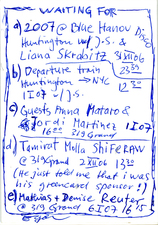 WAITING FOR
a) 2007 @ Blue Hanov Disco
Huntington w/ J.S. &
Liana Skrabitz 31XII06
b) Departure train 23:59
Huntington → NYC
1I07 w/ J.S. 12
c) Guests Anna Mataro &
Jordi Martinez 1I07
16:00 @ 319 Grand
d) Tamirat Mulla SHIFERAW
@ 319 Grand 2XII06 13:30
(He just told me that i was
his greencard sponsor!)
e) Mathias + Denise Reuter
@ 319 Grand 6I07 16:15